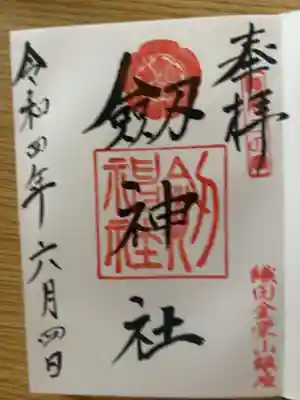 奉拝
劔神社
令和四年六月四日
織田金栄山鎮座